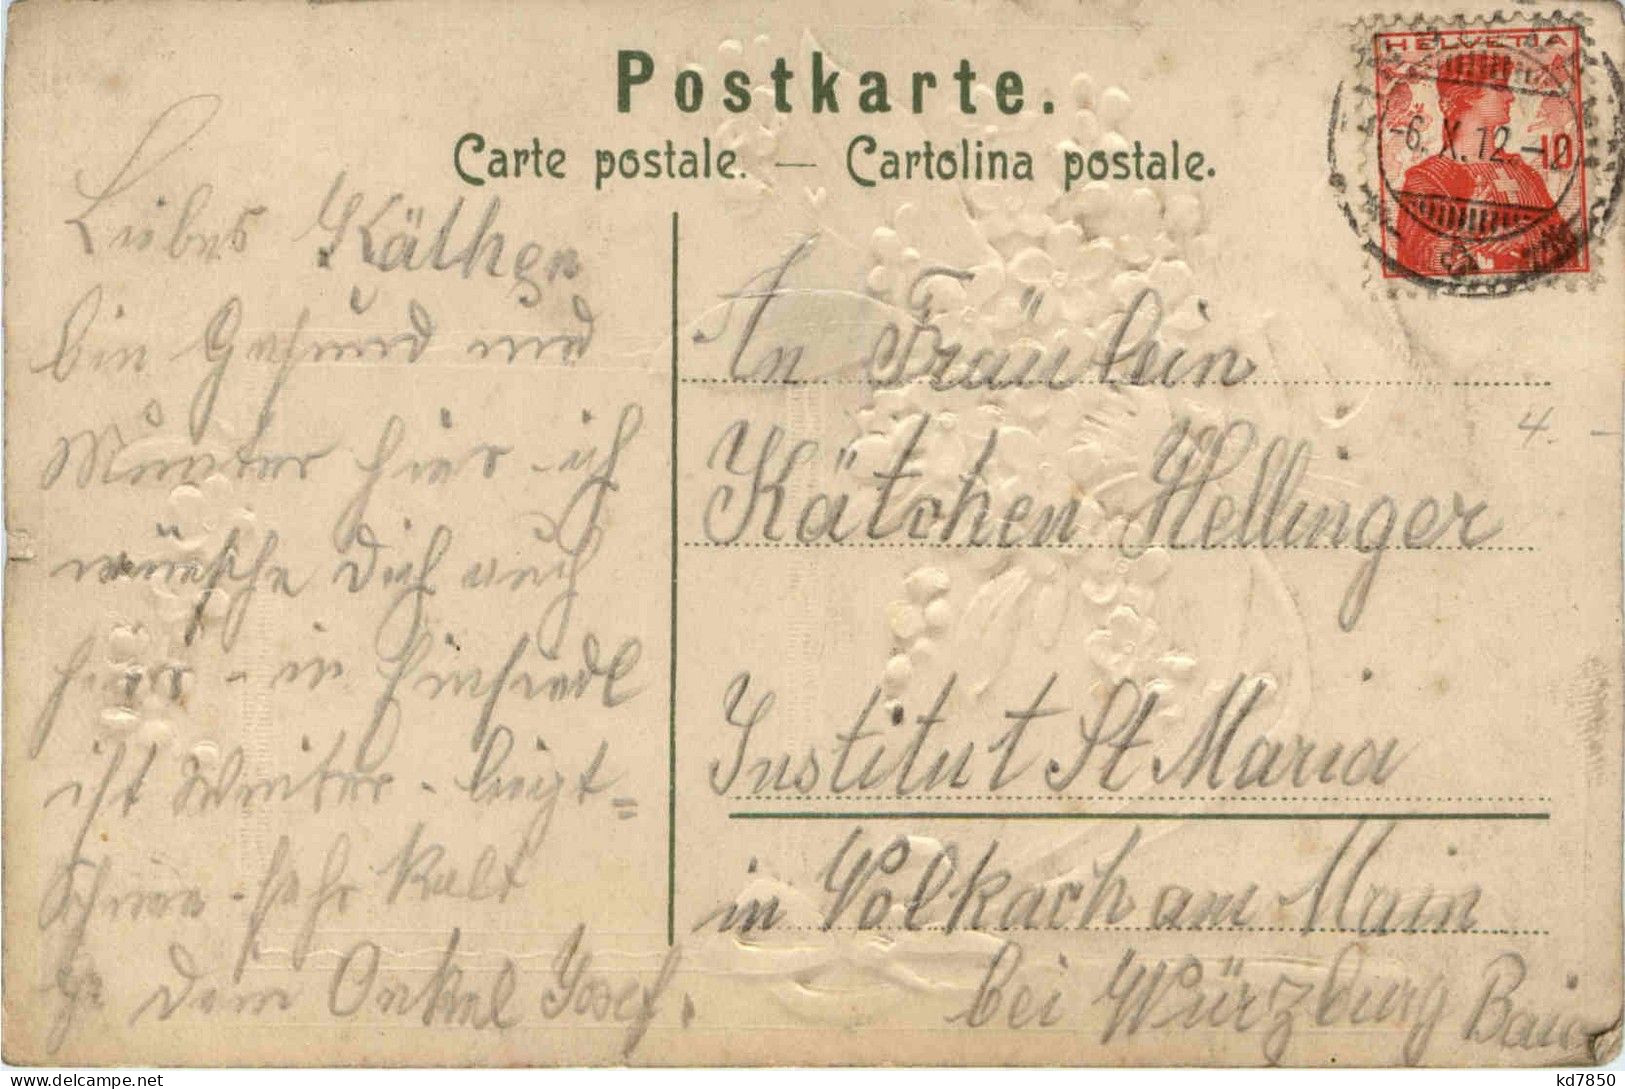 Postkarte.
Carte postale. — Cartolina postale.
HELVETIA
-6. X. 12. -
10
Liebes Käthen
bin Gesund und
Munter hier ich
wünsche Dich auch
hier - in Einsiedl
ist Winter - liegt =
Schnee - sehr kalt
dein Onkel Josef.
An Fräulein
Kätchen Hellinger
Institut St Maria
in Volkach am Main
bei Würzburg Baier
4. -
kd7850